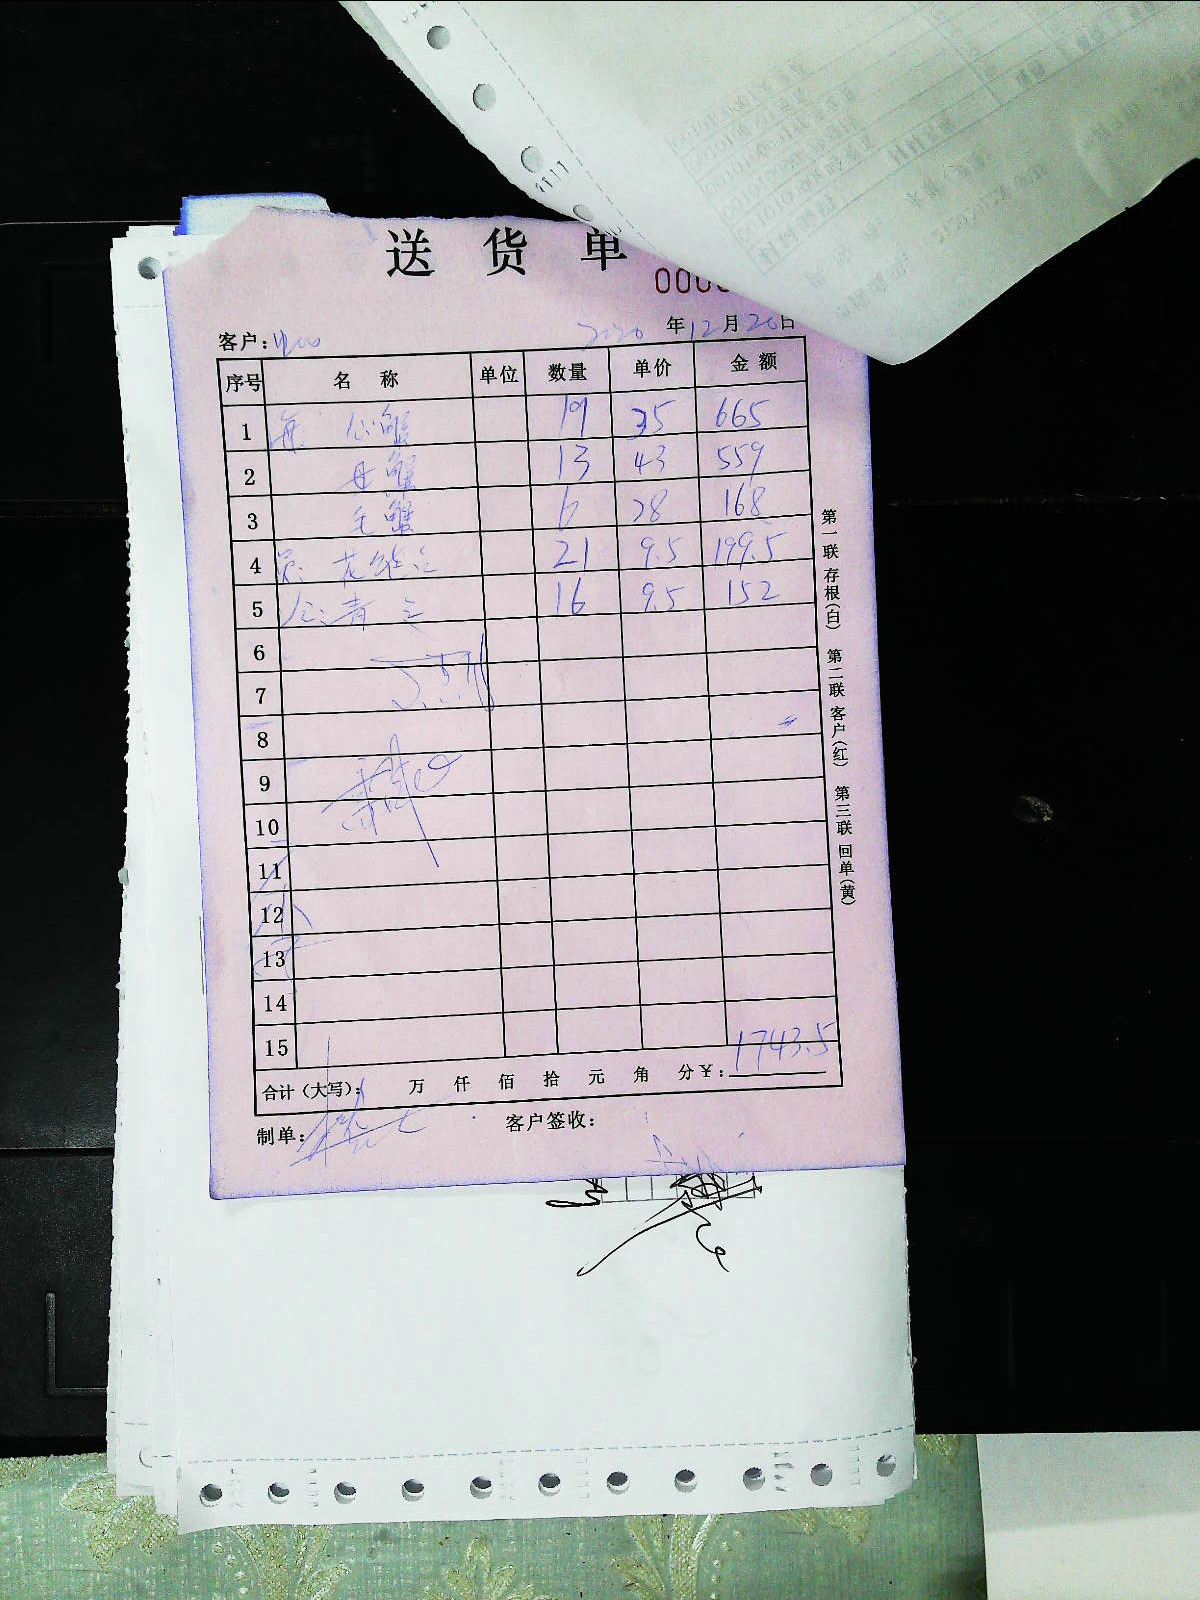 送货单
000
客户: 2020年12月20日
序号 名称 单位 数量 单价 金额
1 公蟹 19 35 665
2 母蟹 13 43 559
3 毛蟹 6 28 168
4 花 21 9.5 199.5
5 青 16 9.5 152
6
7
8
9
10
11
12
13
14
15
合计(大写): 万 仟 佰 拾 元 角 分¥:1743.5
制单: 客户签收:
第一联 存根(白) 第二联 客户(红) 第三联 回单(黄)